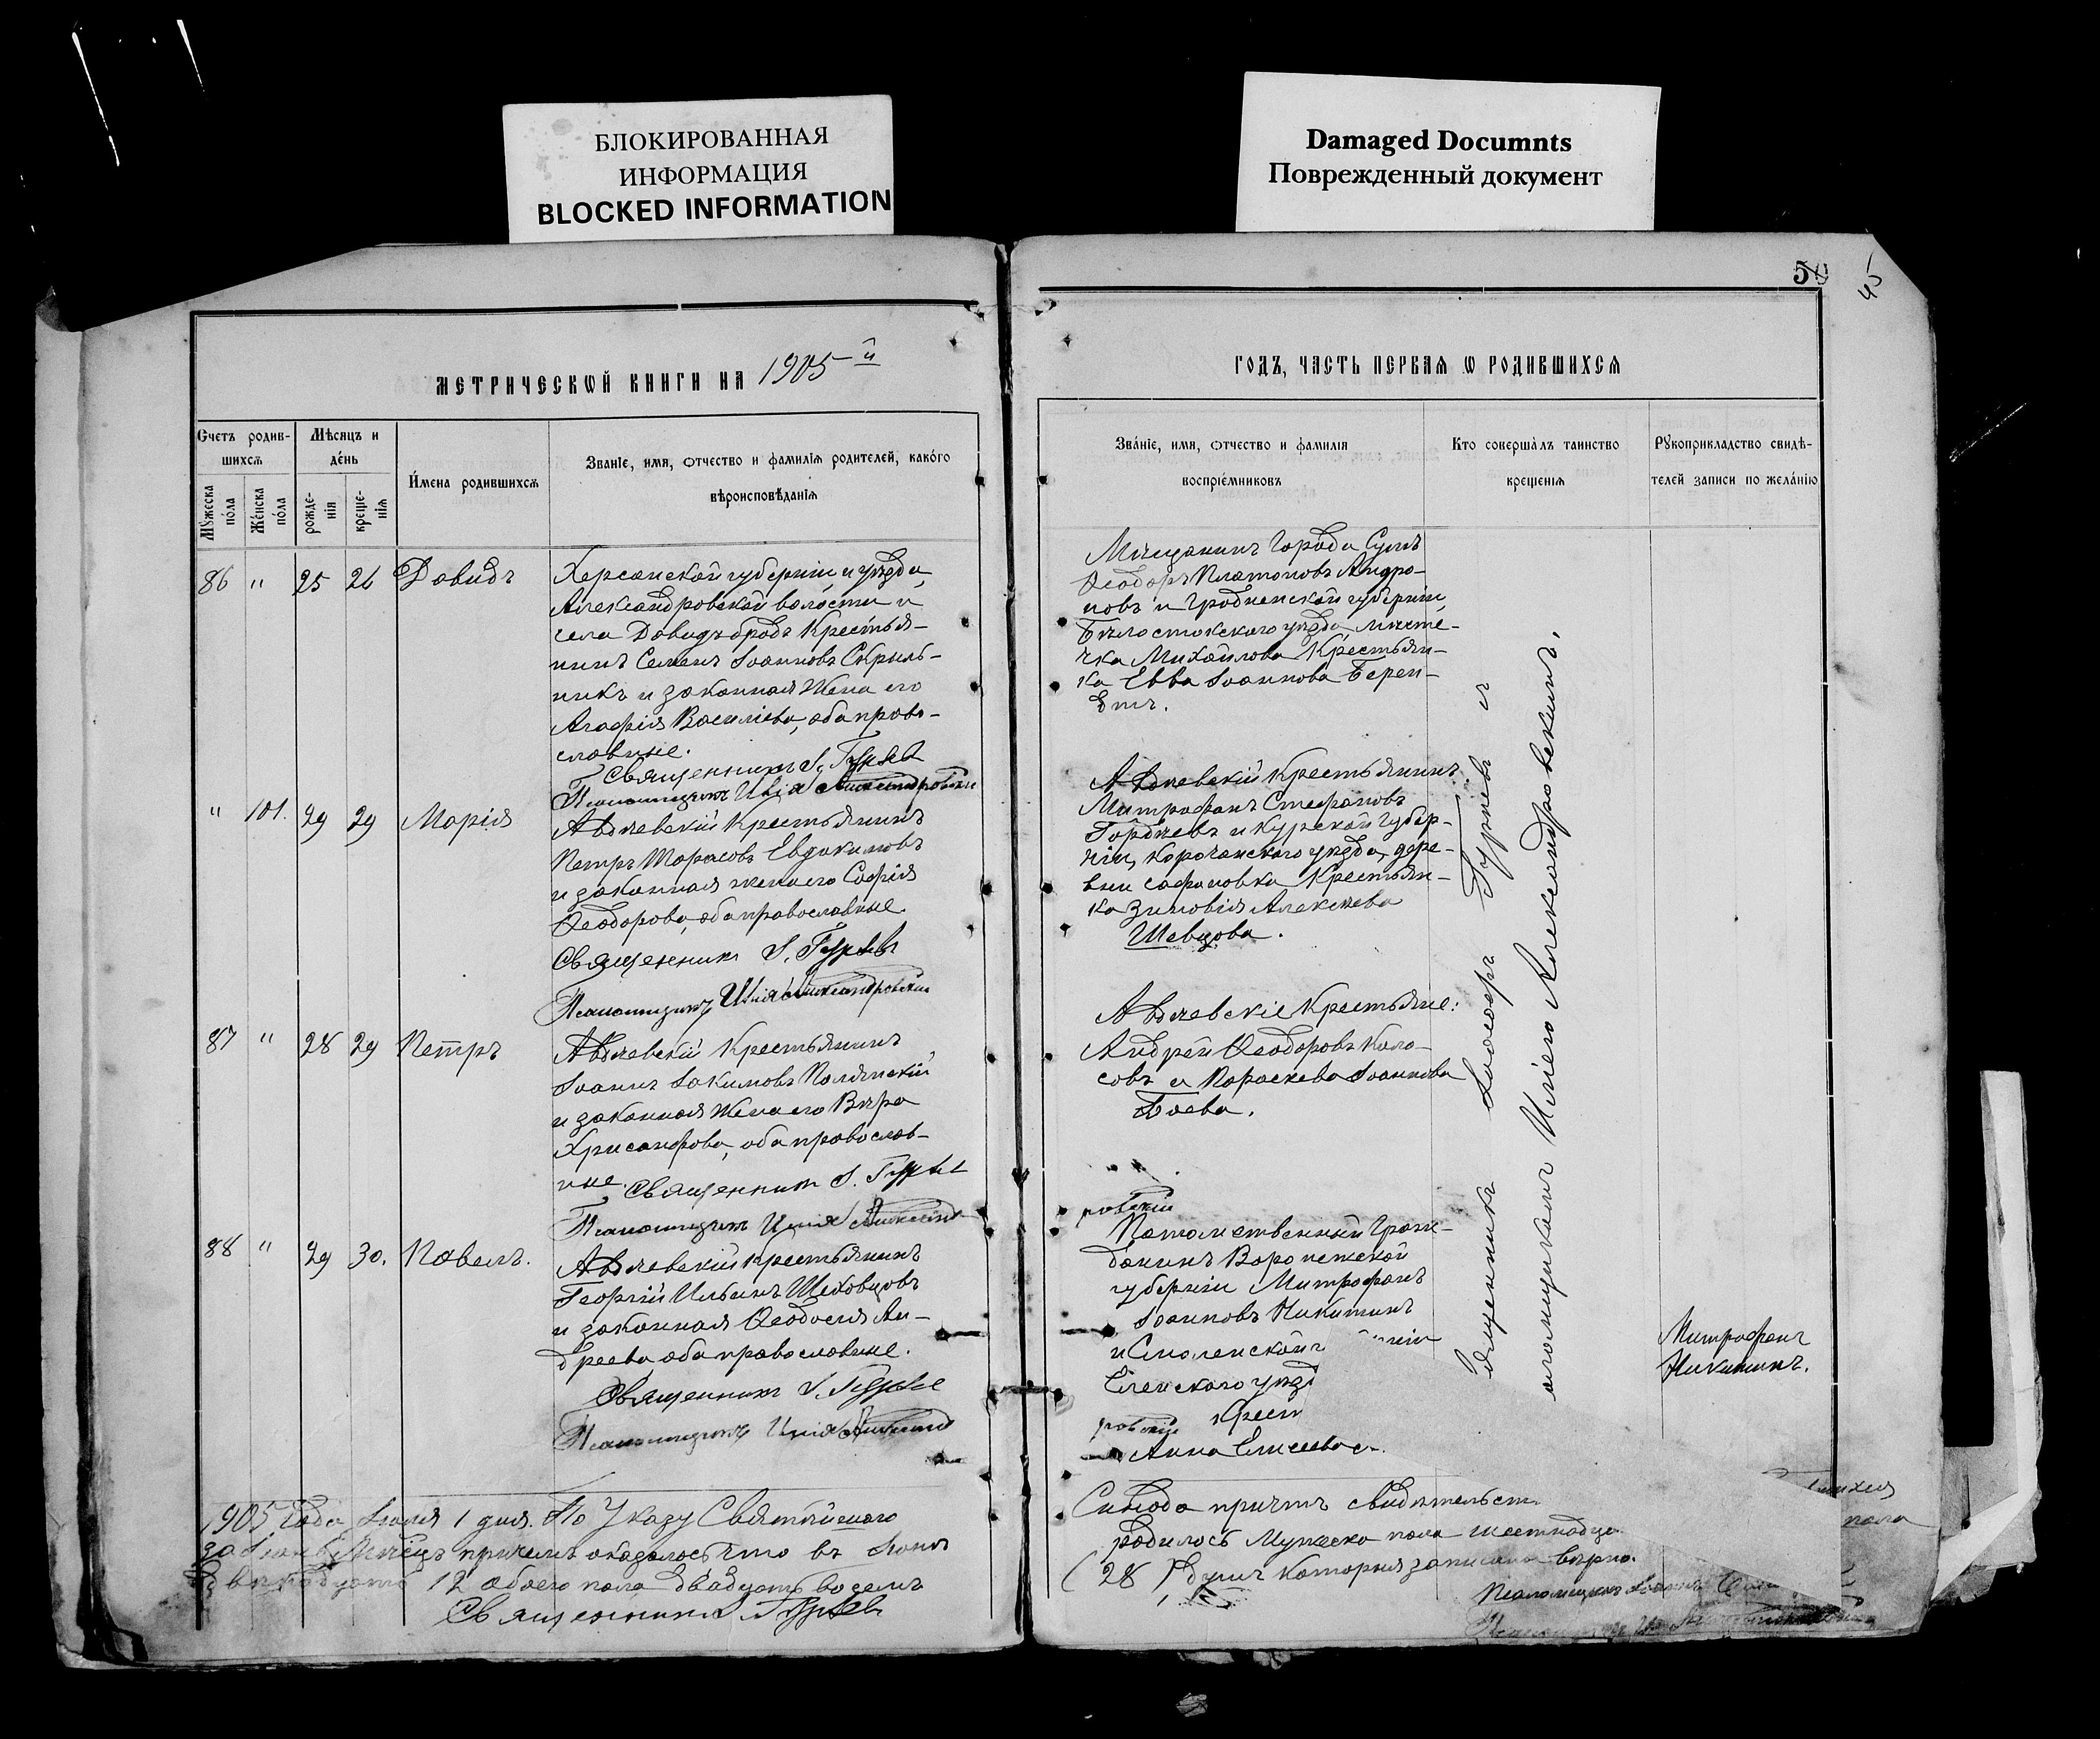 БЛОКИРОВАННАЯ
ИНФОРМАЦИЯ
BLOCKED INFORMATION
Damaged Documnts
Поврежденный документ
45
МЕТРИЧЕСКѠЙ КНИГИ НА 1905й
Счетъ родив-
шихсѧ
Мꙋжеска
пóла
Жéнска
пóла
Мѣсяцъ и
дéнь
рожде-
нія
креще-
нія
И́мена родившихсѧ
Званіе, имя, ѻтчество и фамилія родителей, какóго
вѣроисповѣданія
86 " 25 26 Давидъ
Херсонской губерніи и уѣзда,
Александровской волости и
села Давидъ-бродъ Крестья-
нинъ Семенъ Іоанновъ Скрыль-
никъ и законная жена его
Агафія Василіева, оба право-
славные.
Священникъ І. Гурьев
Псаломщикъ Илія Александровскій
" 101. 29 29 Марія
Авдѣевскій Крестьянинъ
Петръ Тарасовъ Евдокимовъ
и законная жена его Софія
Ѳеодорова, оба православные.
Священникъ І. Гурьевъ
Псаломщикъ Илія Александровскій
87 " 28 29 Петръ
Авдѣевскій Крестьянинъ
Іоаннъ Іакимовъ Полянскій
и законная жена его Вѣра
Хрисанфова, оба православ-
ные. Священникъ І. Гурьев
Псаломщикъ Илія Александ
88 " 29 30. Павелъ.
Авдѣевскій Крестьянинъ
Георгій Ильинъ Шеховцовъ
и законная Ѳеодосія Ан-
дреева оба православные.
Священникъ І. Гурьев
Псаломщикъ Илія Александ
1905 года Іюля 1 дня. По Указу Святѣйшаго
за Іюнь Мѣсяцъ причемъ оказалось что въ Іюнѣ
12 обоего пола двадцать восемь
Священникъ І. Гурьев
ГОДЪ, ЧАСТЬ ПЕРВАѦ Ѡ РОДИВШИХСѦ
Звáніе, имя, ѻтчество и фамилія
воспріéмниковъ
Кто совершáлъ таинство
крещенія
Рꙋкоприкладство свидѣ-
телей записи по желáнію
Мѣщанинъ города Сумъ
Ѳеодоръ Платоновъ Андро-
новъ и Гродненской губерніи,
Бѣлостокского уѣзда, мѣсте-
чка Михайлова Крестьян-
ка Евва Іоаннова Берен-
дтъ.
Авдѣевскій Крестьянинъ
Митрофанъ Стефановъ
Гордѣевъ и Курской Губер-
ніи, Корочанского уѣзда, дере-
вни Сафоновка Крестьян-
ка Зиновія Алексѣева
Шевцова.
Авдѣевскіе Крестьяне:
Андрей Ѳеодоровъ Коло-
совъ и Параскева Іоаннова
Боева.
ровскій
Потомственный Граж-
данинъ Воронежской
губерніи Митрофанъ
Іоанновъ Никитинъ
и Смоленской г
Еленского уѣзд
Крест
ровскій
Анна Елисеева
Священникъ Гурьевъ и
псаломщикомъ Иліею Александровскимъ.
Митрофанъ
Никитинъ.
Синода причтъ свидѣтельст
родилось Мужеска пола шестнадца
пола
(28) душъ которыя записаны вѣрно.
Псаломщикъ